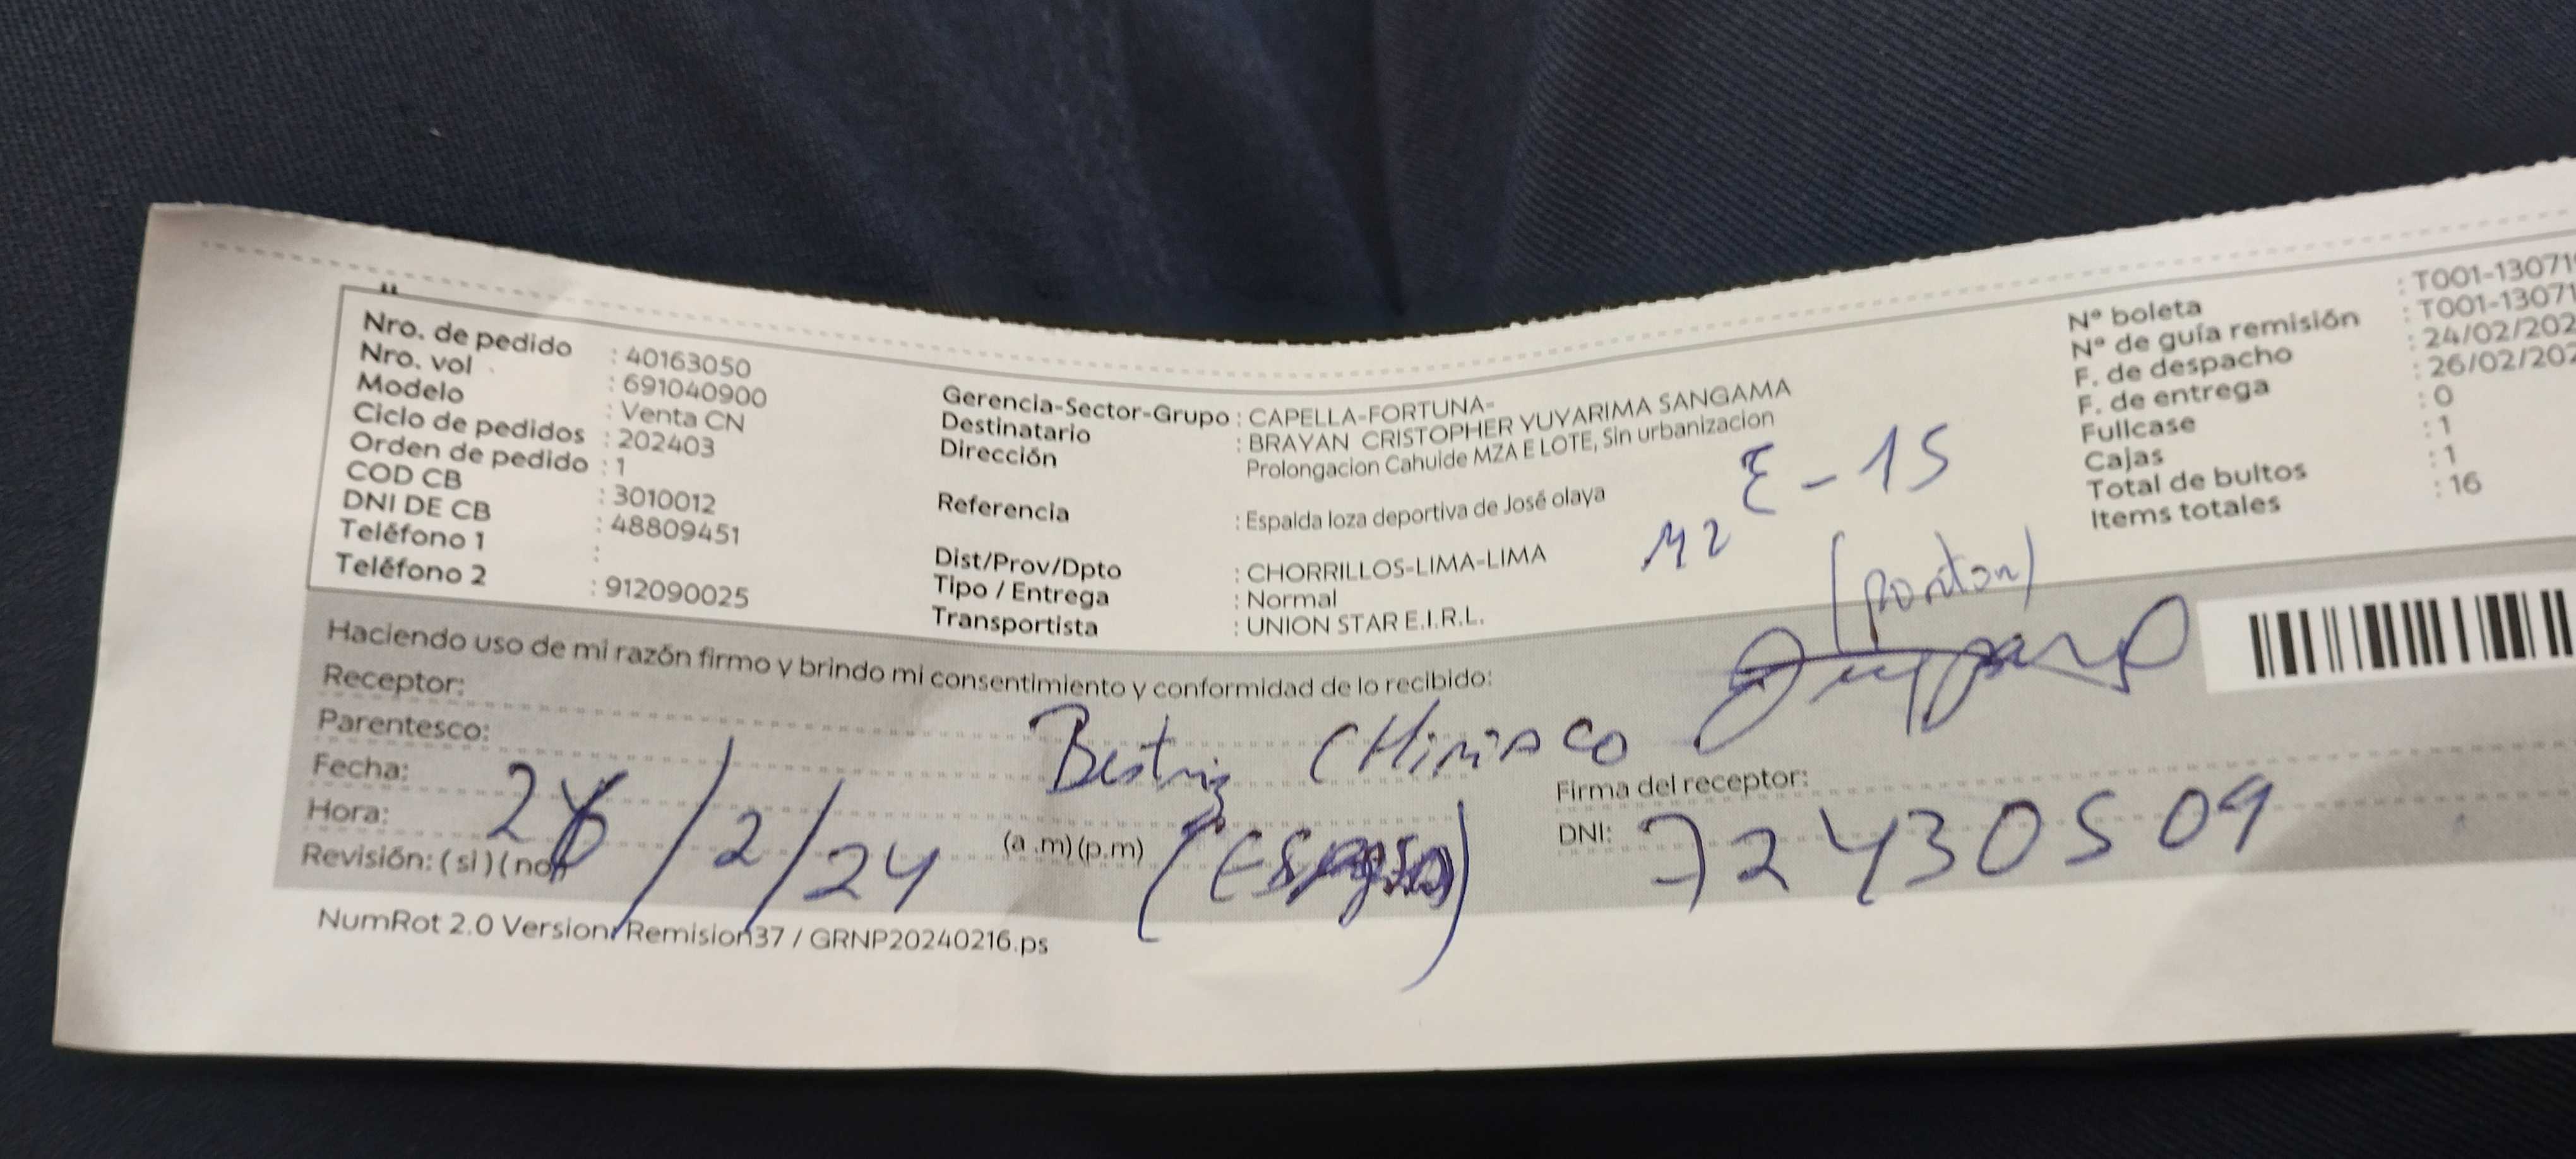 Nro. de pedido : 40163050
Nro. vol : 691040900
Modelo : Venta CN
Ciclo de pedidos : 202403
Orden de pedido : 1
COD CB : 3010012
DNI DE CB : 48809451
Teléfono 1 :
Teléfono 2 : 912090025
Gerencia-Sector-Grupo : CAPELLA-FORTUNA-
Destinatario : BRAYAN CRISTOPHER YUYARIMA SANGAMA
Dirección : Prolongacion Cahuide MZA E LOTE, Sin urbanizacion
Referencia : Espalda loza deportiva de José olaya
Dist/Prov/Dpto : CHORRILLOS-LIMA-LIMA
Tipo / Entrega : Normal
Transportista : UNION STAR E.I.R.L.
Mz E-15
(porton)
N° boleta : T001-13071
N° de guía remisión : T001-13071
F. de despacho : 24/02/202
F. de entrega : 26/02/202
Fullcase : 0
Cajas : 1
Total de bultos : 1
Items totales : 16
Haciendo uso de mi razón firmo y brindo mi consentimiento y conformidad de lo recibido:
Receptor:
Parentesco:
Beatriz
Fecha: 26/2/24
Hora: (a .m)(p.m)
Revisión: (si)(no)
Firma del receptor:
DNI: 72430509
NumRot 2.0 Version: Remision37 / GRNP20240216.ps